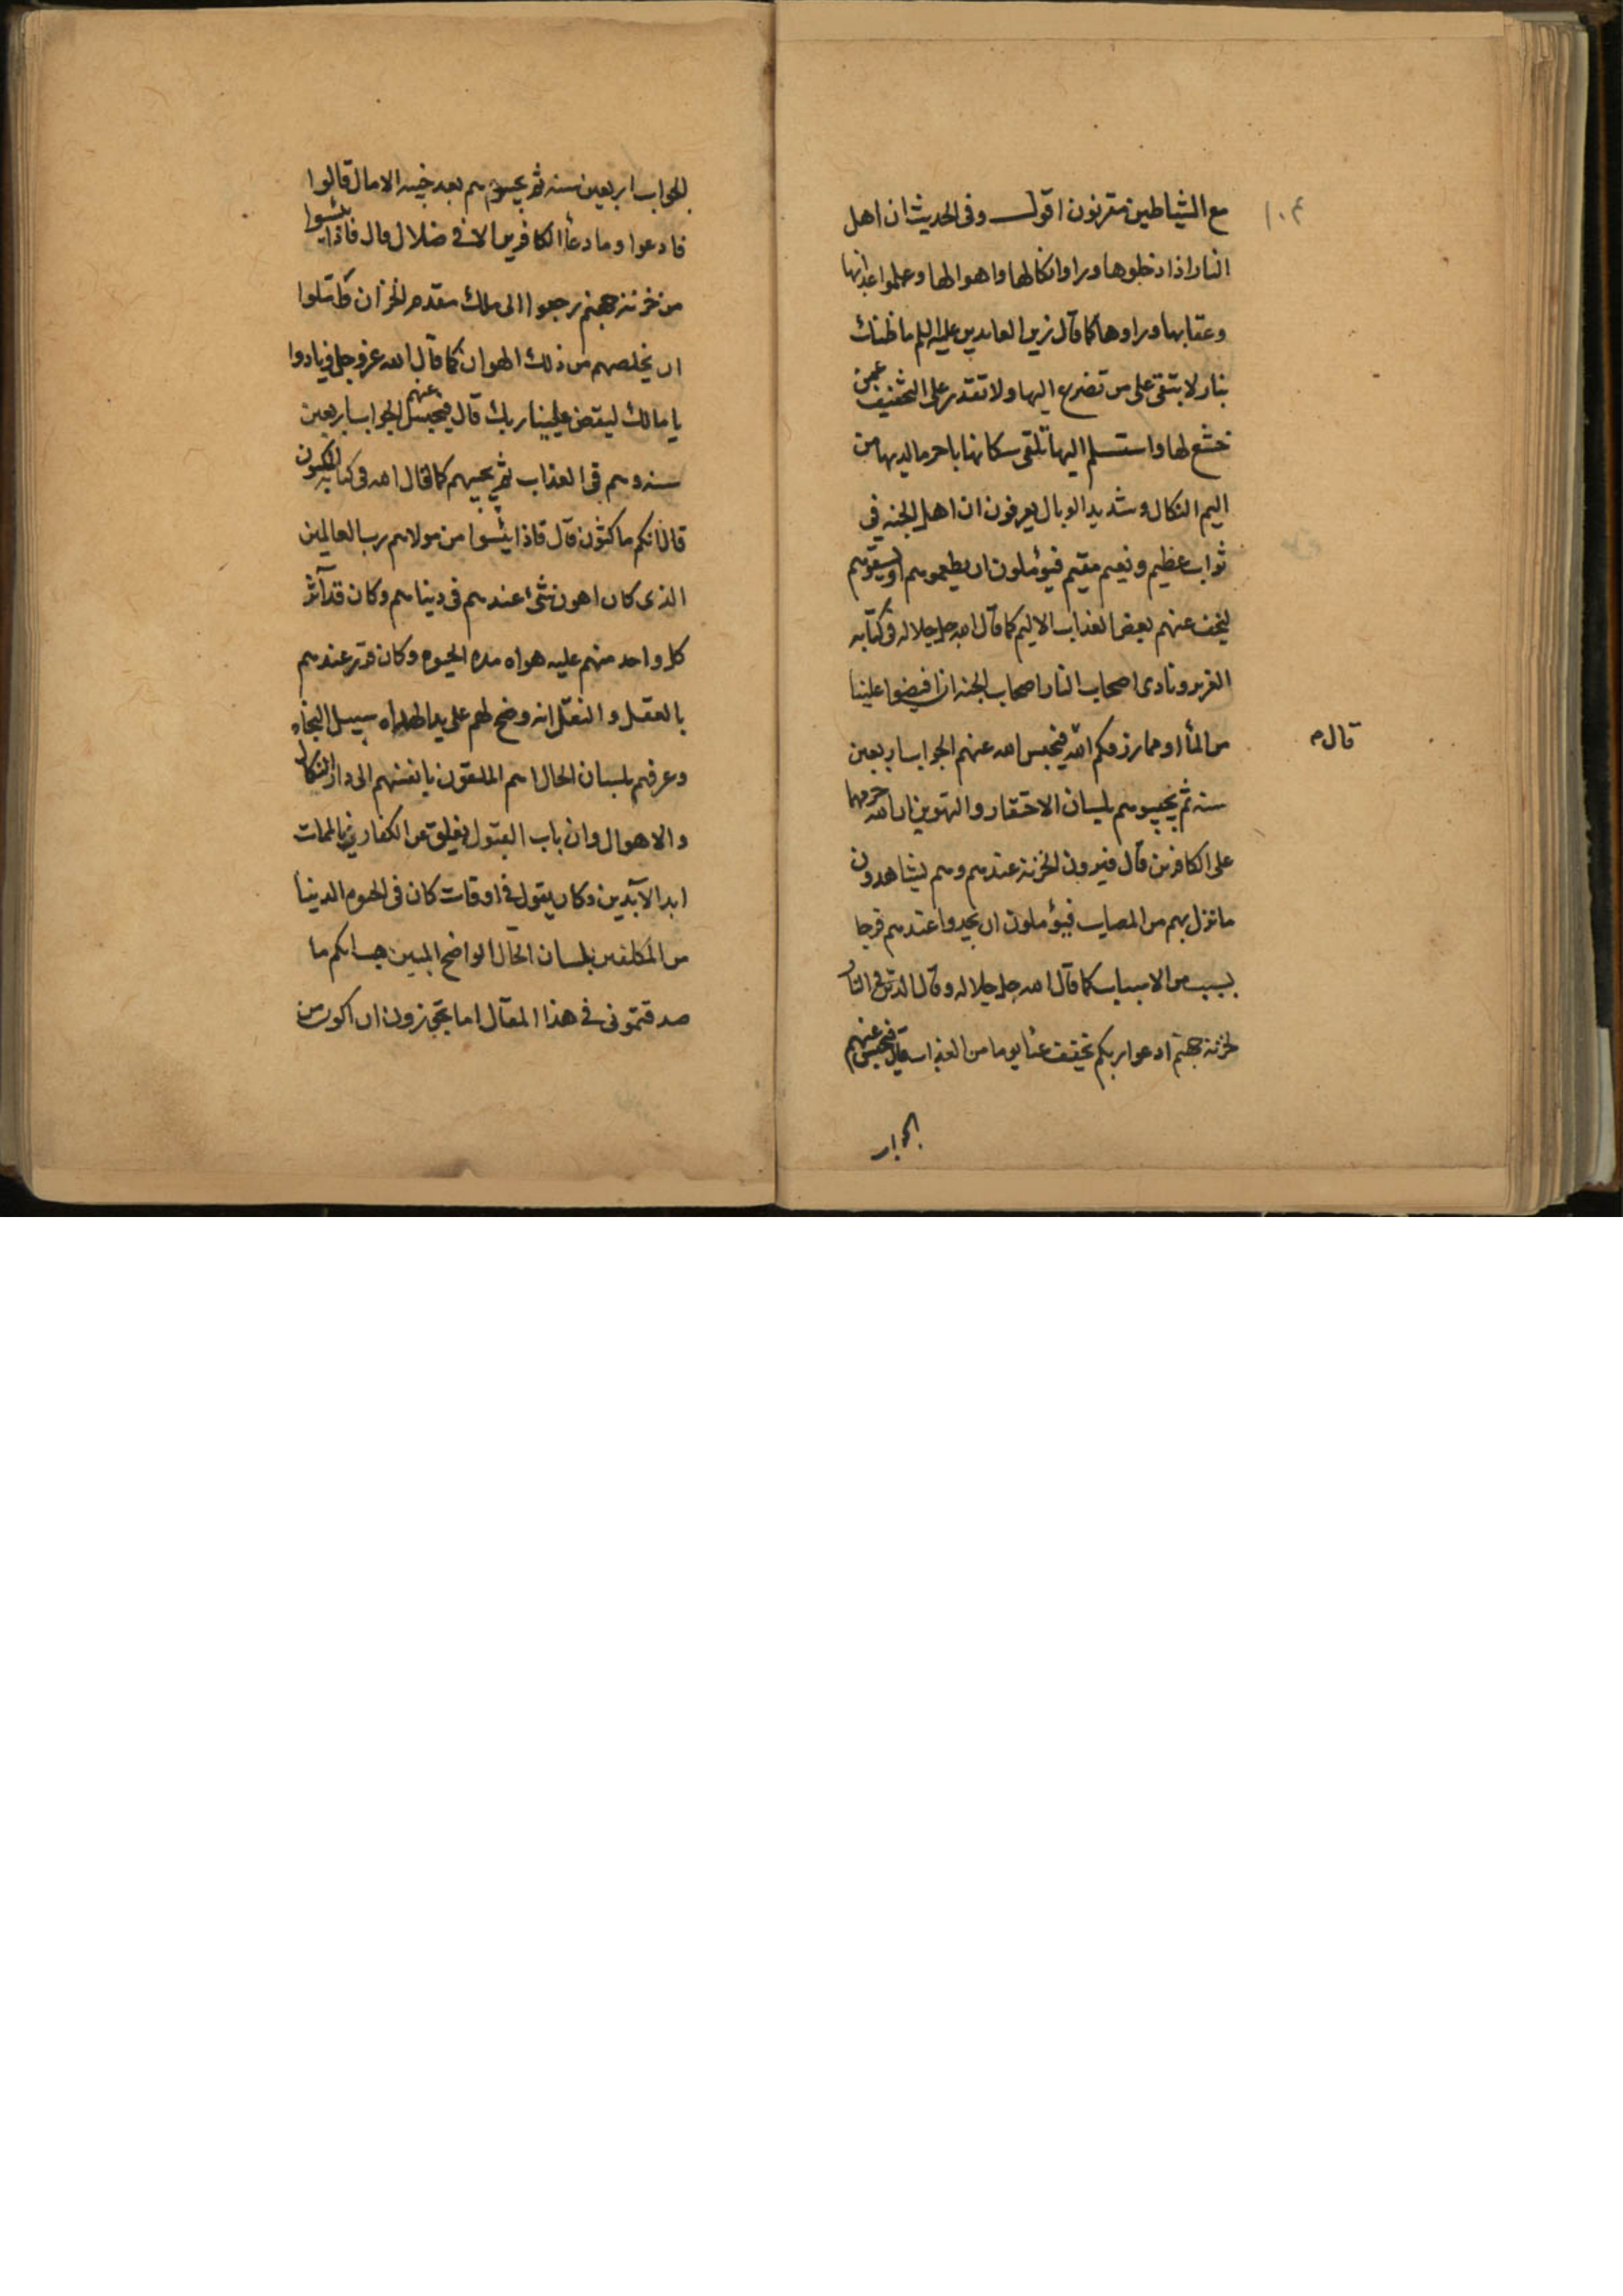 ١٠٤
مع الشياطين مقرنون اقول وفى الحديث ان اهل
النار اذا دخلوها وراوا نكالها واهوالها وعلموا عذابها
وعقابها وراوها كما قال زين العابدين عليه السلم ما ظنك
بنار لا تبقى على من تضرع اليها ولا تقدر على التخفيف عمن
خشع لها واستسلم اليها تلقى سكانها باحر ما لديها من
اليم النكال وشديد الوبال يعرفون ان اهل الجنه فى
ثواب عظيم ونعيم مقيم فيؤملون ان يطعموهم او يسقوهم
ليخف عنهم بعض العذاب الاليم كما قال الله جل جلاله فى كتابه
العزيز ونادى اصحاب النار اصحاب الجنه ان افيضوا علينا
من المأ او مما رزقكم الله فيحبس الله عنهم الجواب اربعين
قال م
سنه ثم يجيبوهم بلسان الاحتقار والتهوين ان الله حرمهما
على الكافرين قال فيرون الخزنه عندهم وهم يشاهدون
ما نزل بهم من المصاب فيؤملون ان يجدوا عندهم فرجا
بسبب من الاسباب كما قال الله جل جلاله وقال الذين فى النار
لخزنه جهنم ادعوا ربكم يخفف عنا يوما من العذاب قال فيحبس عنهم
الجواب
الجواب اربعين سنه ثم يجيبوهم بعد خيبه الامال قالوا
فادعوا وما دعأ الكافرين الا فى ضلال قال فاذا يئسوا
من خزنه جهنم رجعوا الى مالك مقدم الخزان وأملوا
ان يخلصهم من ذلك الهوان كما قال الله عز وجل ونادوا
يا مالك ليقض علينا ربك قال فيحبس عنهم الجواب اربعين
سنه وهم فى العذاب ثم يجيبهم كما قال الله فى كتابه المكنون
قال انكم ماكثون قال فاذا يئسوا من مولاهم رب العالمين
الذى كان اهون شئ عندهم فى دنياهم وكان قد آثر
كل واحد منهم عليه هواه مده الحيوه وكان قرر عندهم
بالعقل والنقل انه وضح لهم على يد الهداه سبيل النجاه
وعرفهم بلسان الحال انهم الملقون بانفسهم الى دار النكال
والاهوال وان باب القبول يغلق عن الكفار بالممات
ابد الآبدين وكان يقول فى اوقات كان فى الحيوه الدنيا
من المكلفين بلسان الحال الواضح المبين هب انكم ما
صدقتمونى فى هذا المقال اما تجوزون ان اكون من